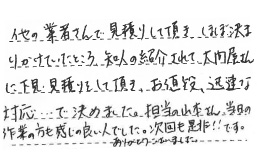 他の業者さんで見積りして頂き、ほぼ決ま
りかけていたところ、知人の紹介されて、大関屋さん
に下見・見積りをして頂き、お値段、迅速な
対応…で決めました。担当の山本さん、当日の
作業の方も感じの良い人でした。次回も是非!!です。
ありがとうございました。